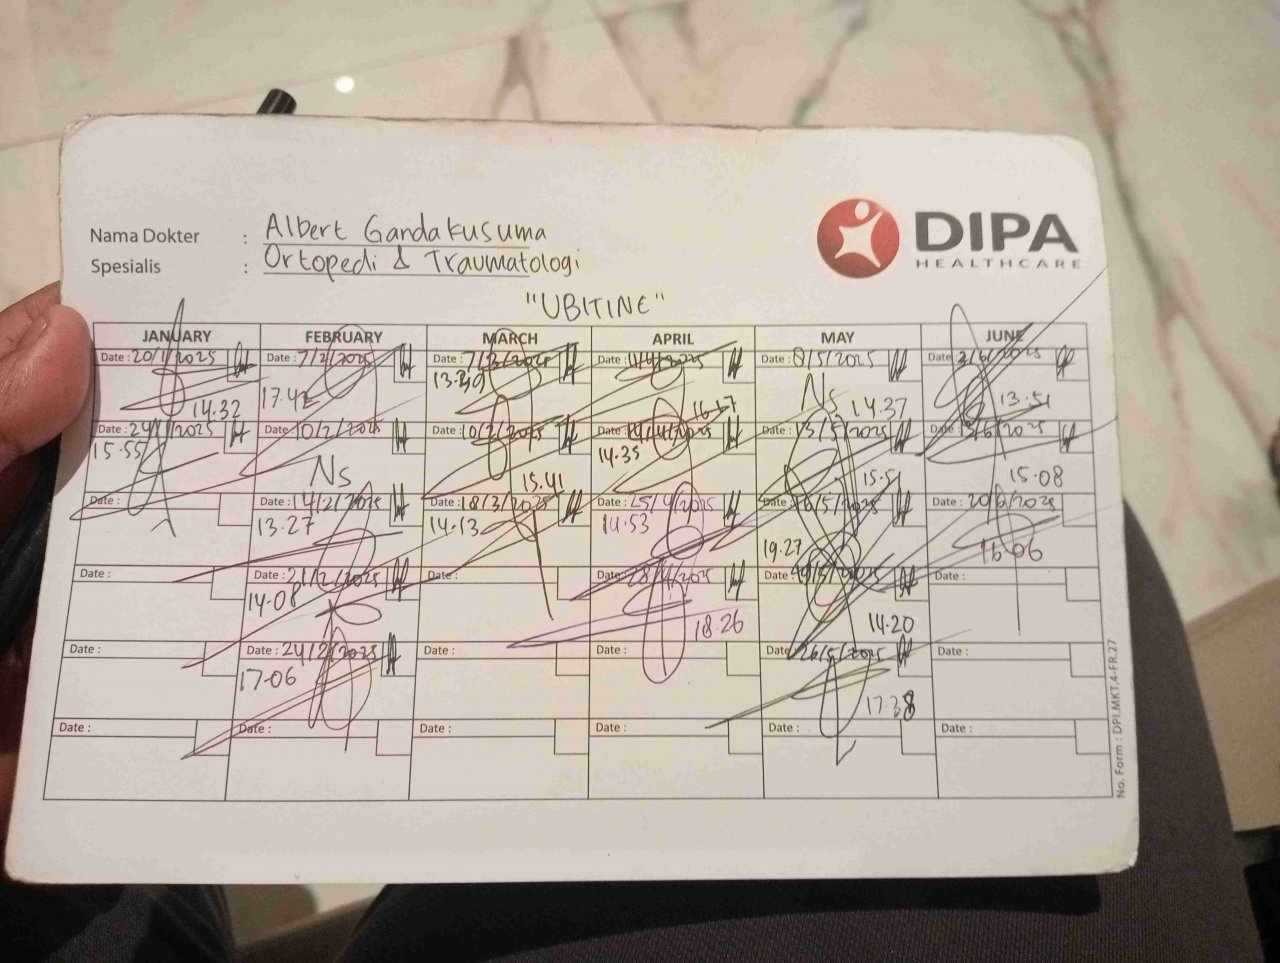 Nama Dokter : Albert Gandakusuma
Spesialis : Ortopedi & Traumatologi
DIPA
HEALTHCARE
"UBITINE"
JANUARY FEBRUARY MARCH APRIL MAY JUNE
Date : 20/1/2025 Date : 7/2/2025 Date : 7/3/2025 Date : Date : 8/5/2025 Date :
14.32 17.42 13.39 16.17 Ns 14.37 13.51
Date : 24/1/2025 Date : 10/2/2025 Date : 10/3/2025 Date : 14/4/2025 Date : 13/5/2025 Date : 13/6/2025
15.55 Ns 15.41 14.35 15.51 15.08
Date : Date : 14/2/2025 Date : 18/3/2025 Date : 25/4/2025 Date : Date : 20/6/2025
13.27 14.13 14.53 19.27 16.06
Date : Date : 21/2/2025 Date : Date : 28/4/2025 Date : Date :
14.08 18.26 14.20
Date : Date : 24/2/2025 Date : Date : Date : 26/5/2025 Date :
17.06 17.38
Date : Date : Date : Date : Date : Date :
No. Form : DPI.MKT.4-FR.27